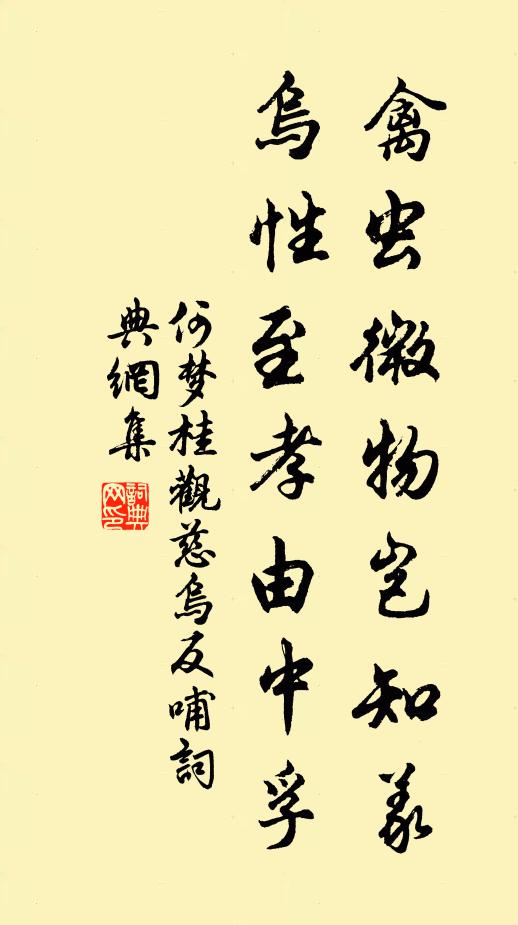 禽虫微物岂知义
乌性至孝由中孚
何梦桂觀慈乌反哺詞
典網集
詞典网印